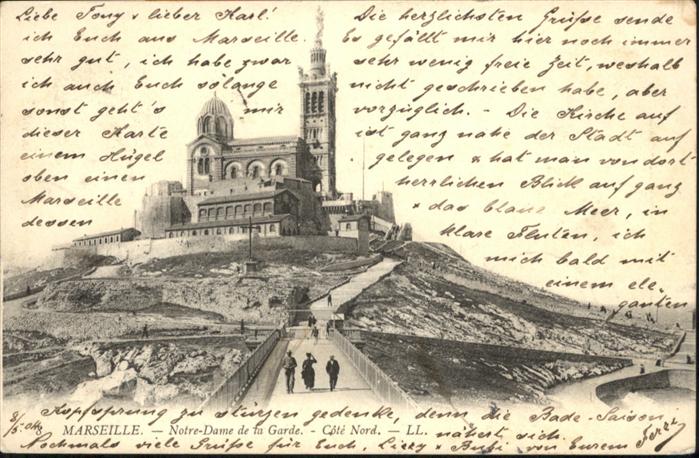 Liebe Tony & lieber Karl! Die herzlichsten Grüße sende
ich Euch aus Marseille. Es gefällt mir hier noch immer
sehr gut, ich habe zwar sehr wenig freie Zeit, weshalb
ich auch Euch solange nicht geschrieben habe, aber
sonst geht's mir vorzüglich. - Die Kirche auf
dieser Karte ist ganz nahe der Stadt auf
einem Hügel gelegen & hat man von dort
oben einen herrlichen Blick auf ganz
Marseille & das blaue Meer, in
dessen klare Fluten, ich
mich bald mit
einem ele-
ganten
Kopfsprung zu stürzen gedenke, denn die Bade-Saison
8 MARSEILLE. — Notre-Dame de la Garde. - Côté Nord. — LL.
nähert sich.
Nochmals viele Grüße für Euch, Liezy & Bubi von Eurem